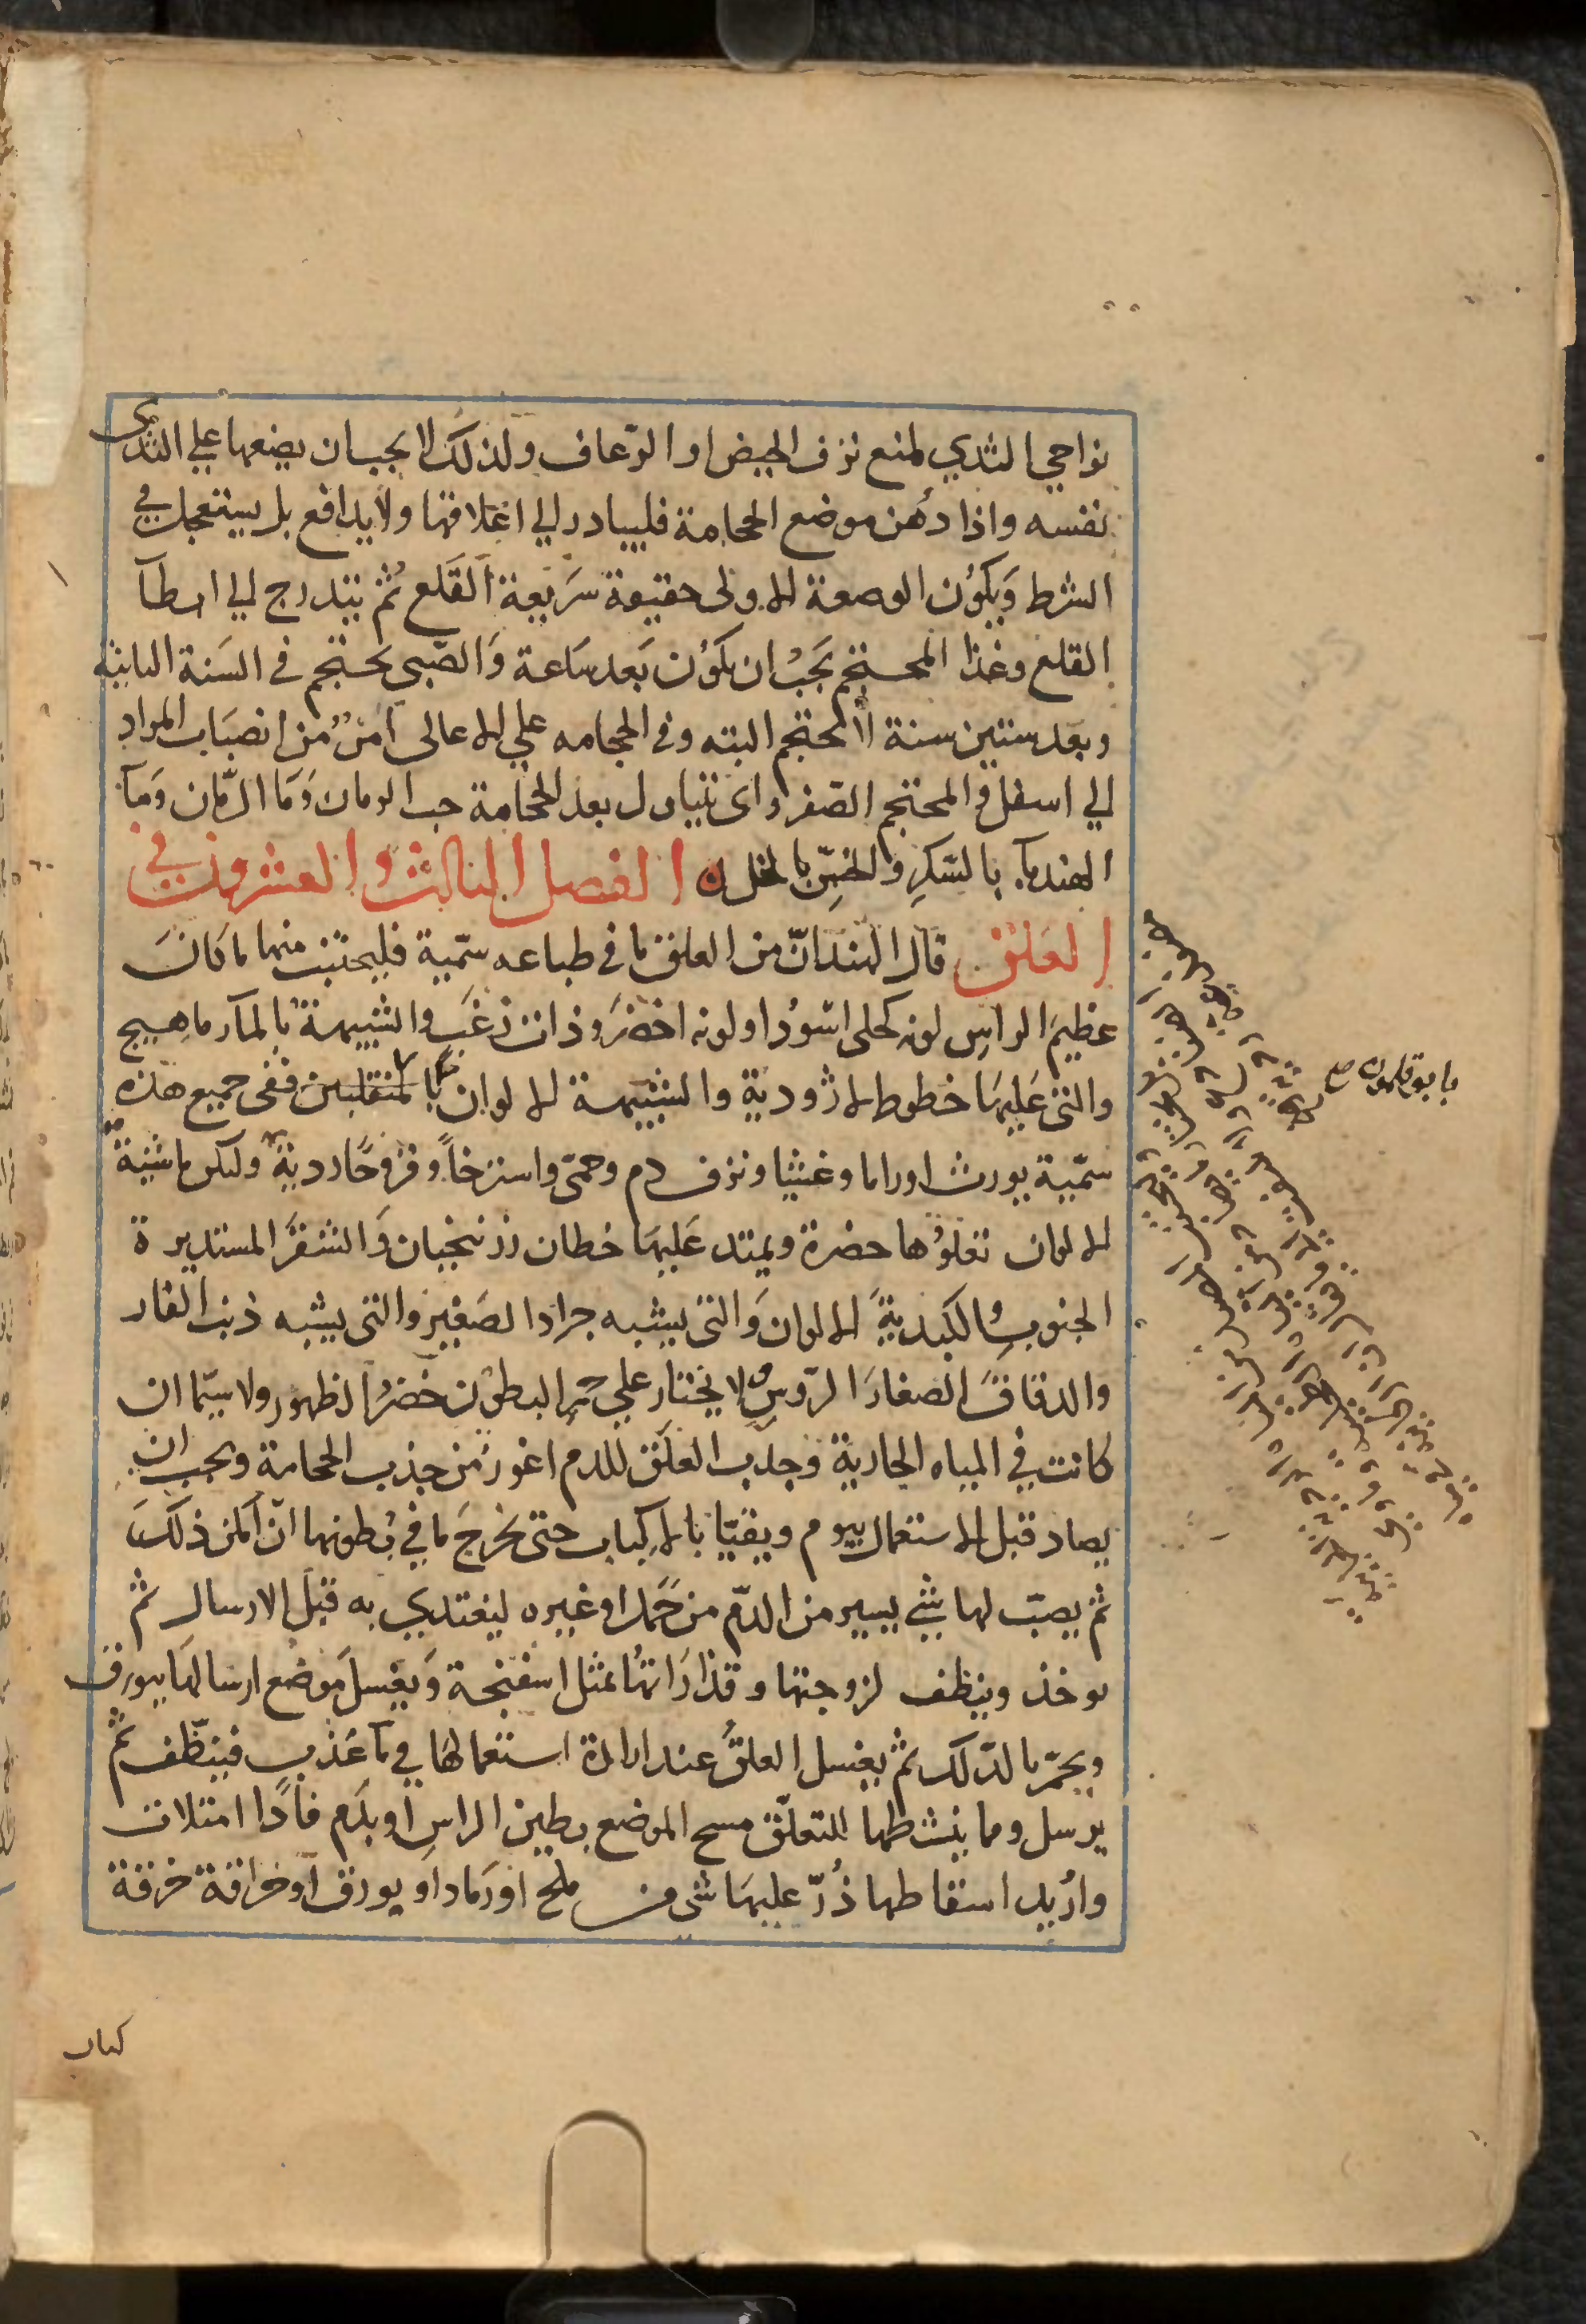 نواحي الثدي لمنع نزف الحيض او الرّعاف ولذلك لا يجب ان يضعها علي الثدى
نفسه واذا دهن موضع الحجامة فليبادر الي اغلاقها ولا يدافع بل يستعجل في
الشرط وَيكوُن الوصعة الاولى حقيقة سَريعة القَلع ثُم يتدرج الي ابطآ
القلع وغذا المحتجم يَجبُ ان يكوُن بَعد سَاعة وَالصّبى يحتجم في السَنة الثانية
وبَعد ستين سنة لا يحتجم البته وفي الحجامه علي الاعالى امنٌ من انصبَاب المواد
الي اسفل والمحتجم الصّفراوى يتناول بعد الحجامة حب الرمان وَمَا الرّمان وَمَآ
الهندبآء بالسّكرِ والخسِّ بالخل ه الفصل الثالث والعشرون في
العَلق قال الهند انّ من العلق ما في طباعه سمّية فليجتنب منها ما كانَ
عظيمَ الراسِ لونه كحلى اسوُد او لونه اخضَر وذات زغَب والشبيهة بالمآرماهيج
والتى عَليهَا خطوط لاژودية والشبيهة الالوان بالمنقلبين ففى جميع هذه
سمّية يورث اوراما وغشيا ونزف دم وحمّى واسترخاً وقروحًا ردية ولكن ماشية
الالوان تعلوُها خضرة ويمتد عَليهَا خطان زرنيخيان وَالشقرَ المستديرة
الجنوبِ الكبديةَ الالوان وَالتى يشبه جرادا لصَغيرَ والتى يشبه ذنب الفار
والدقاقَ الصغارَ الرّوسِ ولا يختار علي حمرِ البطوُن خضرُ الظهور ولا سيّما ان
كانت في المياه الجارية وجذب العلَق للدم اغور من جذب الحجامة ويجب ان
يصاد قبل الاستعمال بيوم ويقيّا بالاكباب حتى يخرجَ ما في بُطونها انّ امكن ذلكَ
ثم يصبّ لها شي يسير من الدّم من حَمل او غيره ليغتدي به قبل الارسال ثم
يوخذ وينظف لزوجتها وقذارَاتهُا بمثل اسفنجة وَيغسل مَوضع ارسالهَا ببورق
ويحمّر بالدّلك ثم يغسل العلقُ عند ارادة استعمالهَا في مآ عَذب فينَظّف ثم
يرسل ومما ينشطها للتعلّق مسح الموضع بطين الراسِ او بدَم فاذا امتلات
واُريد اسقاطها ذُرّ عليهَا شى من ملح او رَماد او بورق او خراقة خرقة
بابوقلمون صح
كتاب